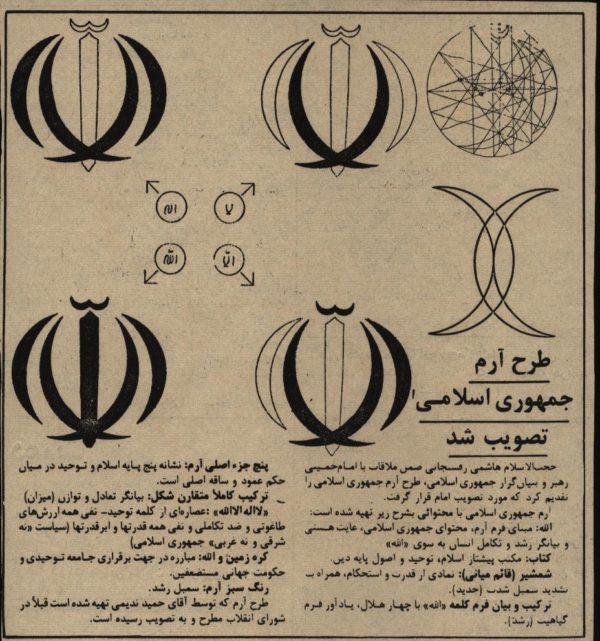 لا
اله
الّا
الله
طرح آرم
جمهوری اسلامی
تصویب شد
حجت‌الاسلام هاشمی رفسنجانی ضمن ملاقات با امام‌خمینی
رهبر و بنیان‌گزار جمهوری اسلامی، طرح آرم جمهوری اسلامی را
تقدیم کرد که مورد تصویب امام قرار گرفت.
آرم جمهوری اسلامی با محتوائی بشرح زیر تهیه شده است:
الله: مبنای فرم آرم، محتوای جمهوری اسلامی، غایت هستی
و بیانگر رشد و تکامل انسان به سوی «الله»
کتاب: مکتب پیشتاز اسلام، توحید و اصول پایه دین.
شمشیر (قائم میانی): نمادی از قدرت و استحکام، همراه با
تشدید سمبل شدت (حدید).
ترکیب و بیان فرم کلمه «الله» با چهار هلال، یادآور فرم
گیاهیت (رشد).
پنج جزء اصلی آرم: نشانه پنج پایه اسلام و توحید در میان
حکم عمود و ساقه اصلی است.
ترکیب کاملاً متقارن شکل: بیانگر تعادل و توازن (میزان)
«لااله‌الاالله»: عصاره‌ای از کلمه توحید- نفی همه ارزش‌های
طاغوتی و ضد تکاملی و نفی همه قدرتها و ابرقدرتها (سیاست «نه
شرقی و نه غربی» جمهوری اسلامی)
کره زمین و الله: مبارزه در جهت برقراری جامعه توحیدی و
حکومت جهانی مستضعفین.
رنگ سبز آرم: سمبل رشد.
طرح آرم که توسط آقای حمید ندیمی تهیه شده است قبلاً در
شورای انقلاب مطرح و به تصویب رسیده است.